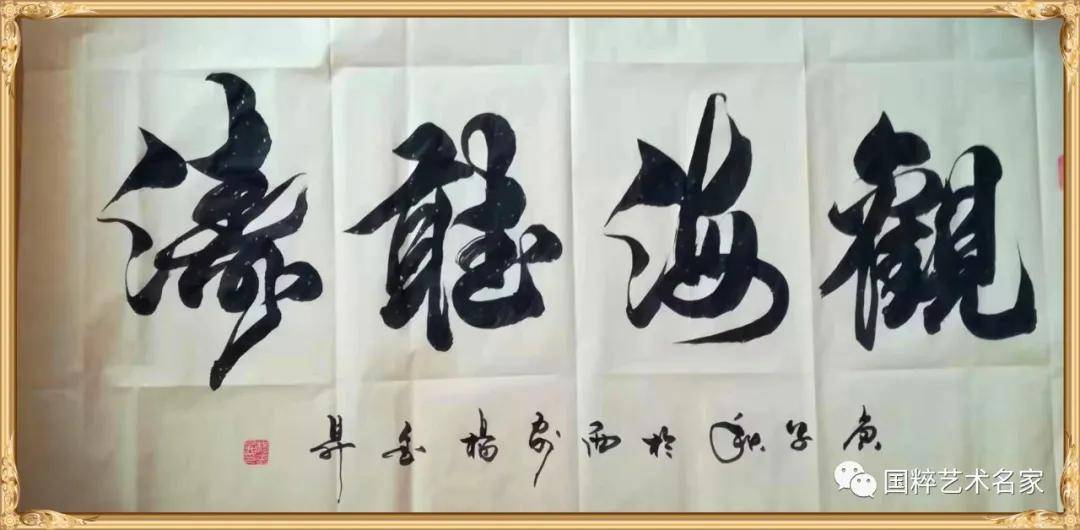 觀海聽濤
庚子秋於西楊
国粹艺术名家